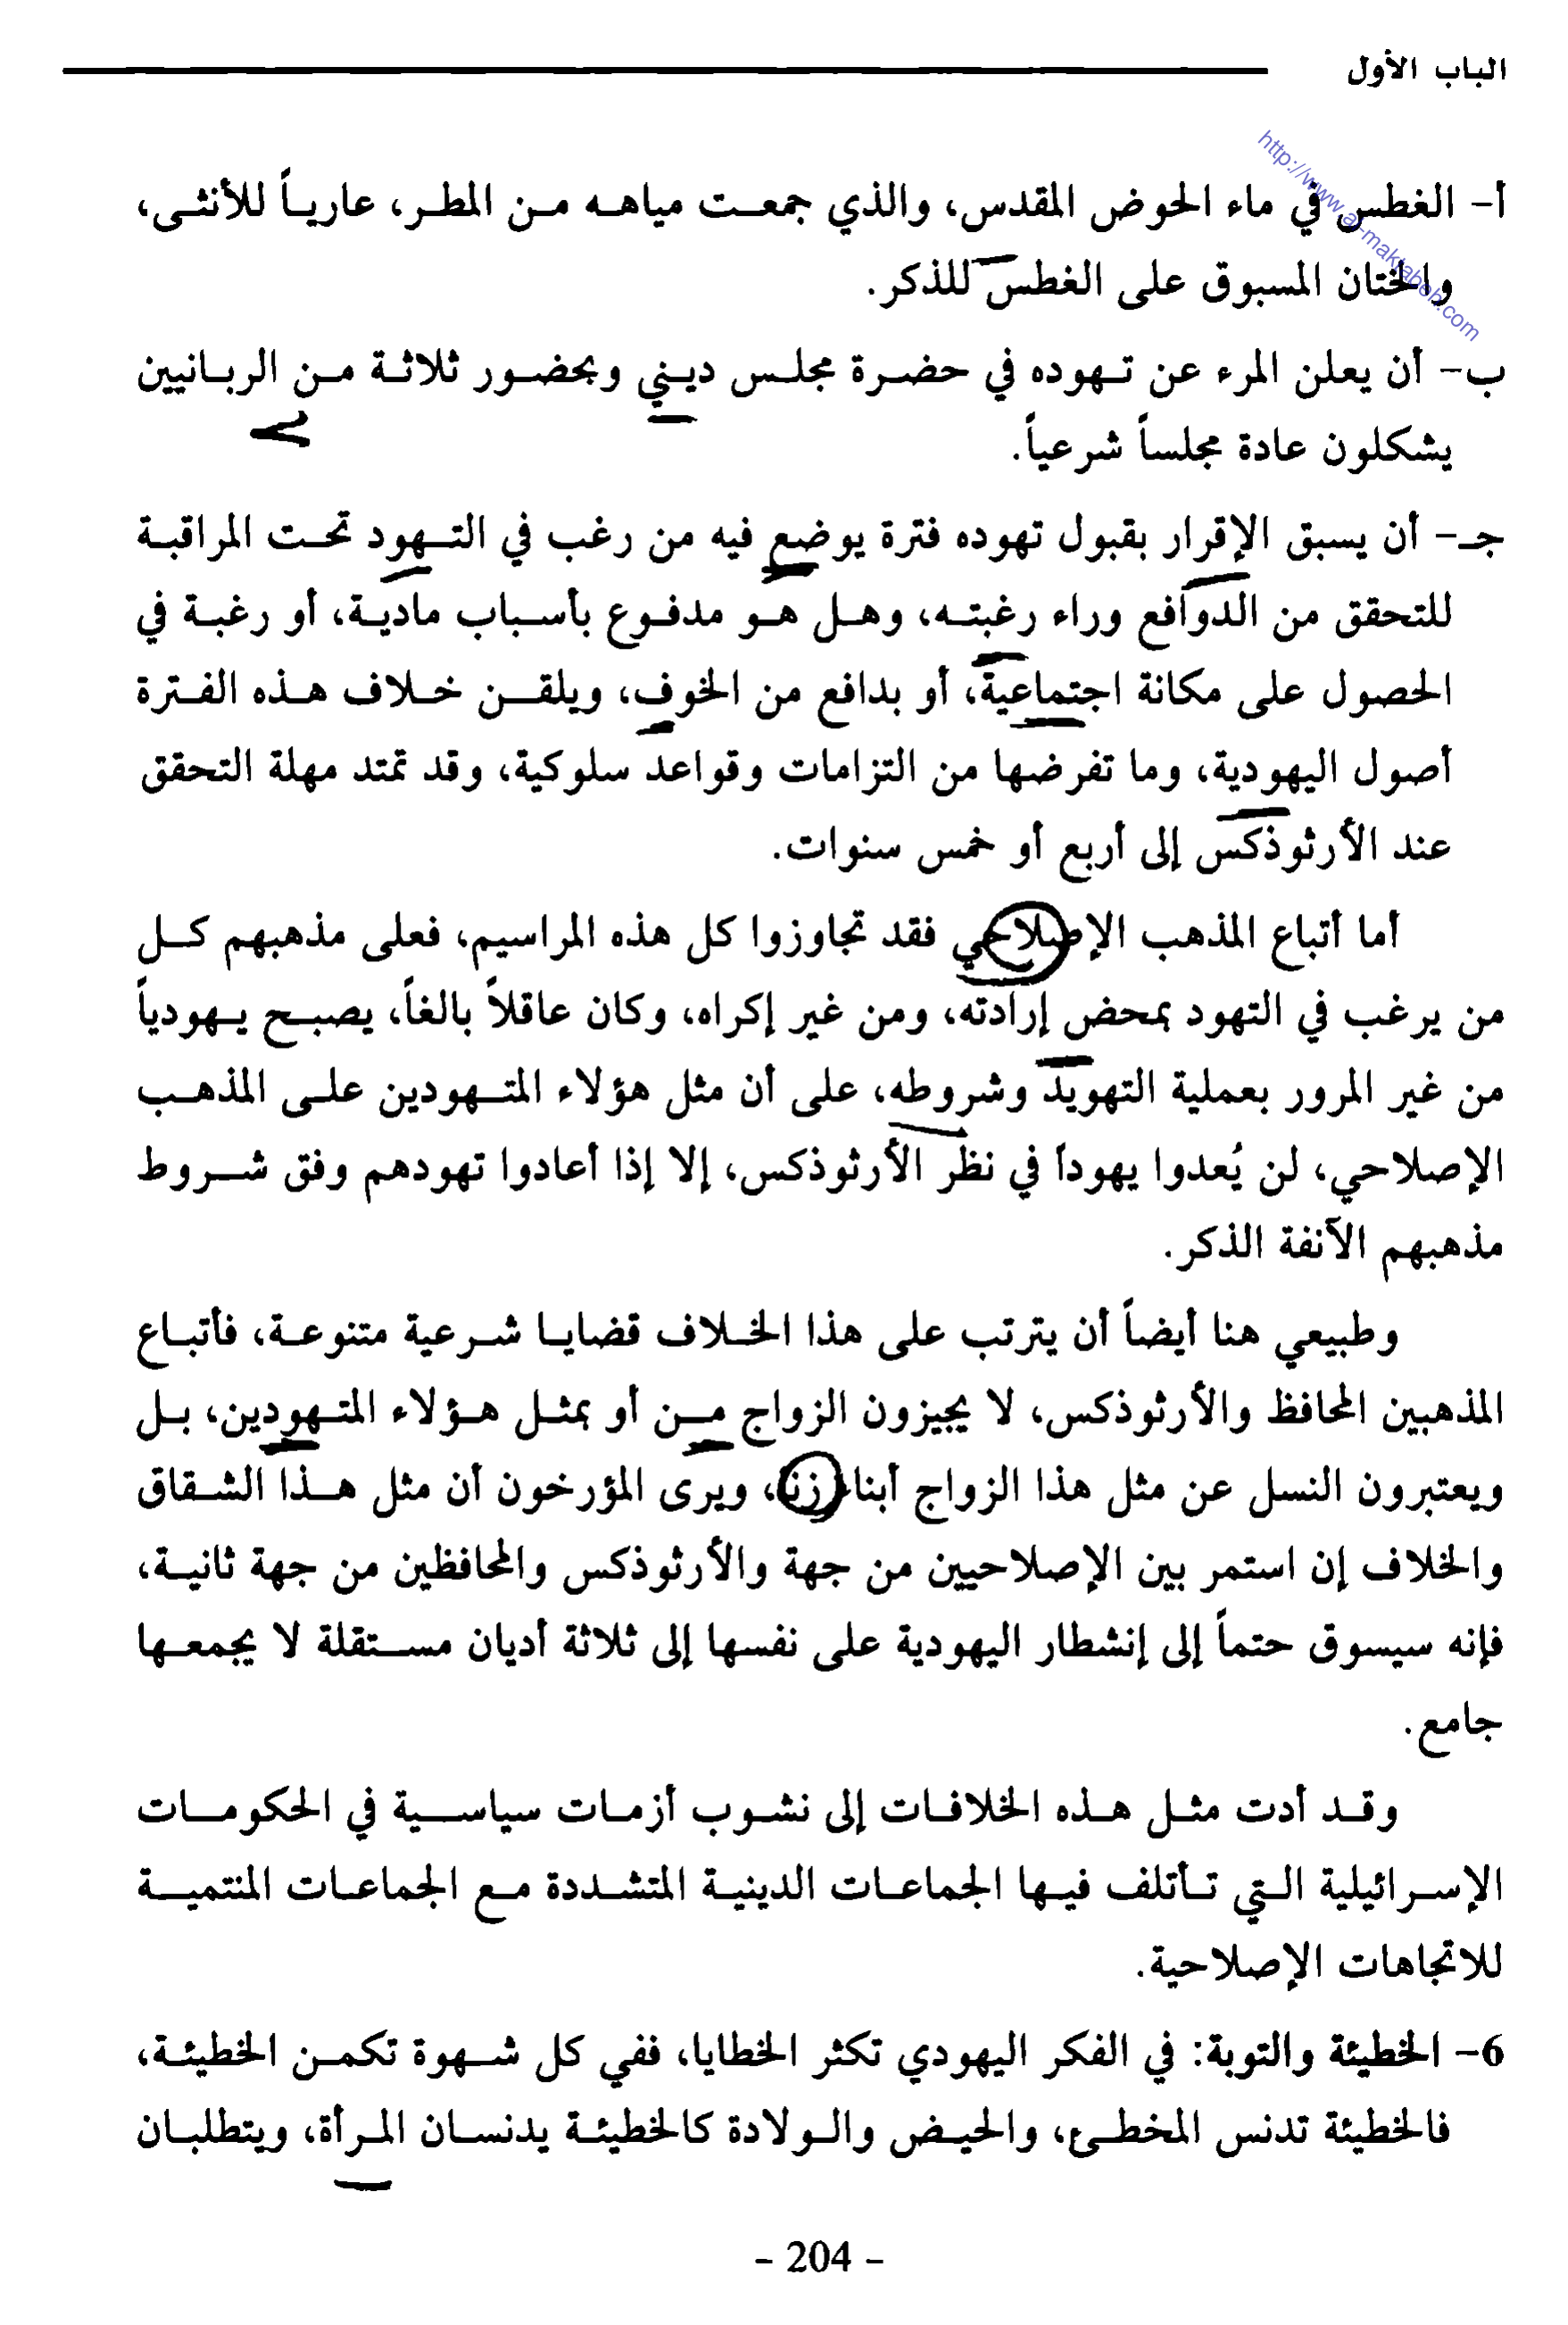 الباب الأول
http://www.al-maktabeh.com
أ- الغطس في ماء الحوض المقدس، والذي جمعت مياهه من المطر، عارياً للأنثى،
والختان المسبوق على الغطس للذكر.
ب- أن يعلن المرء عن تهوده في حضرة مجلس ديني وبحضور ثلاثة من الربانيين
يشكلون عادة مجلساً شرعياً.
جـ- أن يسبق الإقرار بقبول تهوده فترة يوضع فيه من رغب في التهود تحت المراقبة
للتحقق من الدوافع وراء رغبته، وهل هو مدفوع بأسباب مادية، أو رغبة في
الحصول على مكانة اجتماعية، أو بدافع من الخوف، ويلقن خلاف هذه الفترة
أصول اليهودية، وما تفرضها من التزامات وقواعد سلوكية، وقد تمتد مهلة التحقق
عند الأرثوذكس إلى أربع أو خمس سنوات.
أما أتباع المذهب الإصلاحي فقد تجاوزوا كل هذه المراسيم، فعلى مذهبهم كل
من يرغب في التهود بمحض إرادته، ومن غير إكراه، وكان عاقلاً بالغاً، يصبح يهودياً
من غير المرور بعملية التهويد وشروطه، على أن مثل هؤلاء المتهودين على المذهب
الإصلاحي، لن يُعدوا يهوداً في نظر الأرثوذكس، إلا إذا أعادوا تهودهم وفق شروط
مذهبهم الآنفة الذكر.
وطبيعي هنا أيضاً أن يترتب على هذا الخلاف قضايا شرعية متنوعة، فأتباع
المذهبين المحافظ والأرثوذكس، لا يجيزون الزواج من أو بمثل هؤلاء المتهودين، بل
ويعتبرون النسل عن مثل هذا الزواج أبناء زنا، ويرى المؤرخون أن مثل هذا الشقاق
والخلاف إن استمر بين الإصلاحيين من جهة والأرثوذكس والمحافظين من جهة ثانية،
فإنه سيسوق حتماً إلى إنشطار اليهودية على نفسها إلى ثلاثة أديان مستقلة لا يجمعها
جامع.
وقد أدت مثل هذه الخلافات إلى نشوب أزمات سياسية في الحكومات
الإسرائيلية التي تأتلف فيها الجماعات الدينية المتشددة مع الجماعات المنتمية
للاتجاهات الإصلاحية.
6- الخطيئة والتوبة: في الفكر اليهودي تكثر الخطايا، ففي كل شهوة تكمن الخطيئة،
فالخطيئة تدنس المخطئ، والحيض والولادة كالخطيئة يدنسان المرأة، ويتطلبان
- 204 -